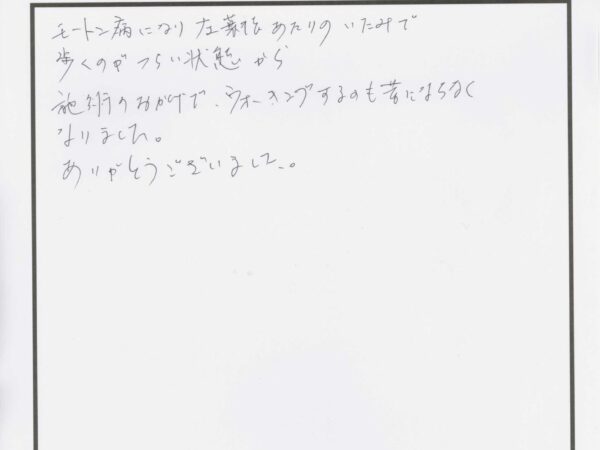 モートン病になり左薬指あたりのいたみで
歩くのがつらい状態から
施術のおかげで、ウォーキングするのも苦にならなく
なりました。
ありがとうございました。